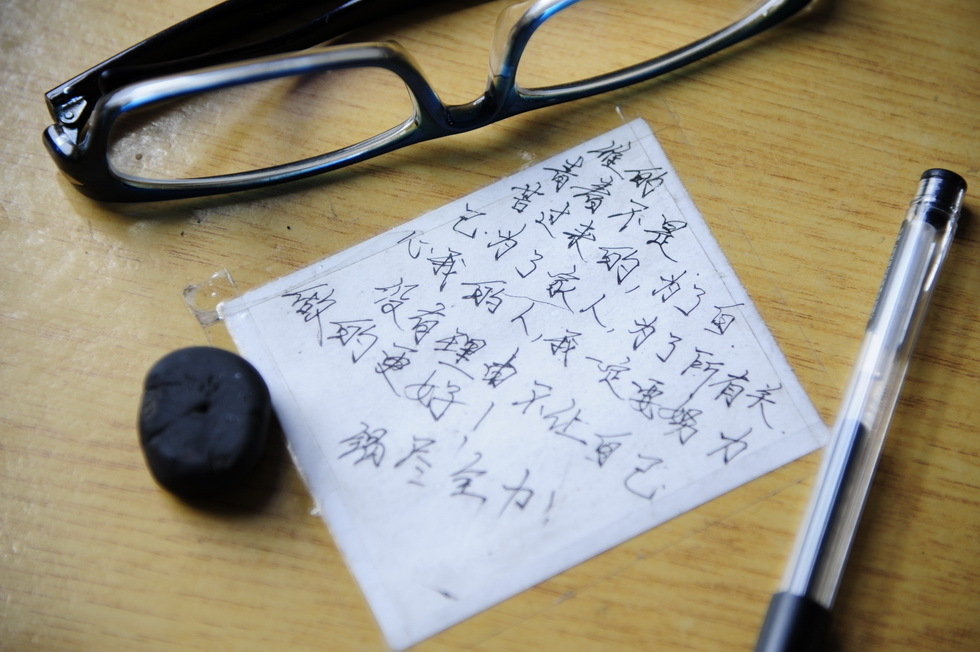 谁的
青春不是
苦过来的,为了自
己.为了家人,为了所有关
心我的人,我一定要努力
没有理由不让自己
做的更好!
竭尽全力!